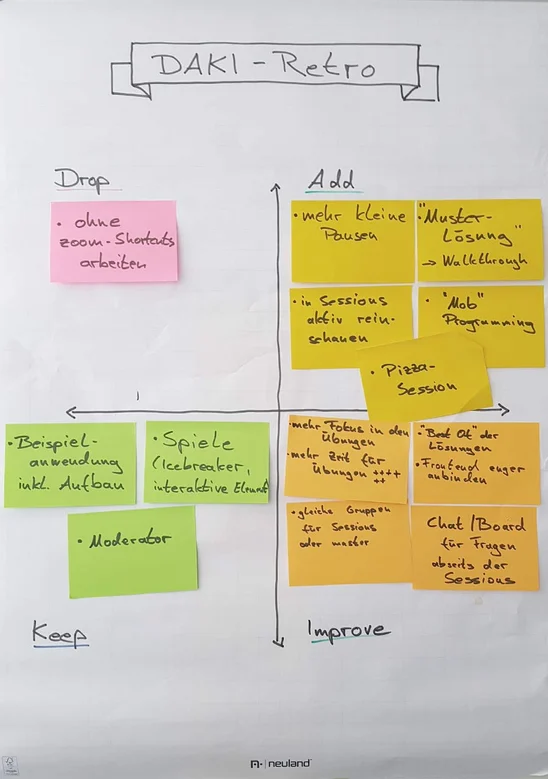 DAKI-Retro
Drop
• ohne
zoom-Shortcuts
arbeiten
Add
• mehr kleine
Pausen
• "Muster-
Lösung"
→ Walkthrough
• in Sessions
aktiv rein-
schauen
• "Mob"
Programming
• Pizza-
Session
• Beispiel-
anwendung
inkl. Aufbau
• Spiele
(Icebreaker,
interaktive
• Moderator
Keep
• mehr Fokus in den
Übungen
• mehr Zeit für
Übungen ++++
++
• "Best Of" der
Lösungen
• Frontend enger
anbinden
• gleiche Gruppen
für Sessions
oder
Chat/Board
für Fragen
abseits der
Sessions
Improve
neuland